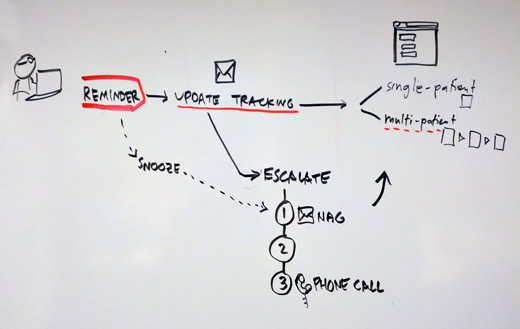 REMINDER
UPDATE TRACKING
single-patient
multi-patient
SNOOZE
ESCALATE
1 NAG
2
3 PHONE CALL